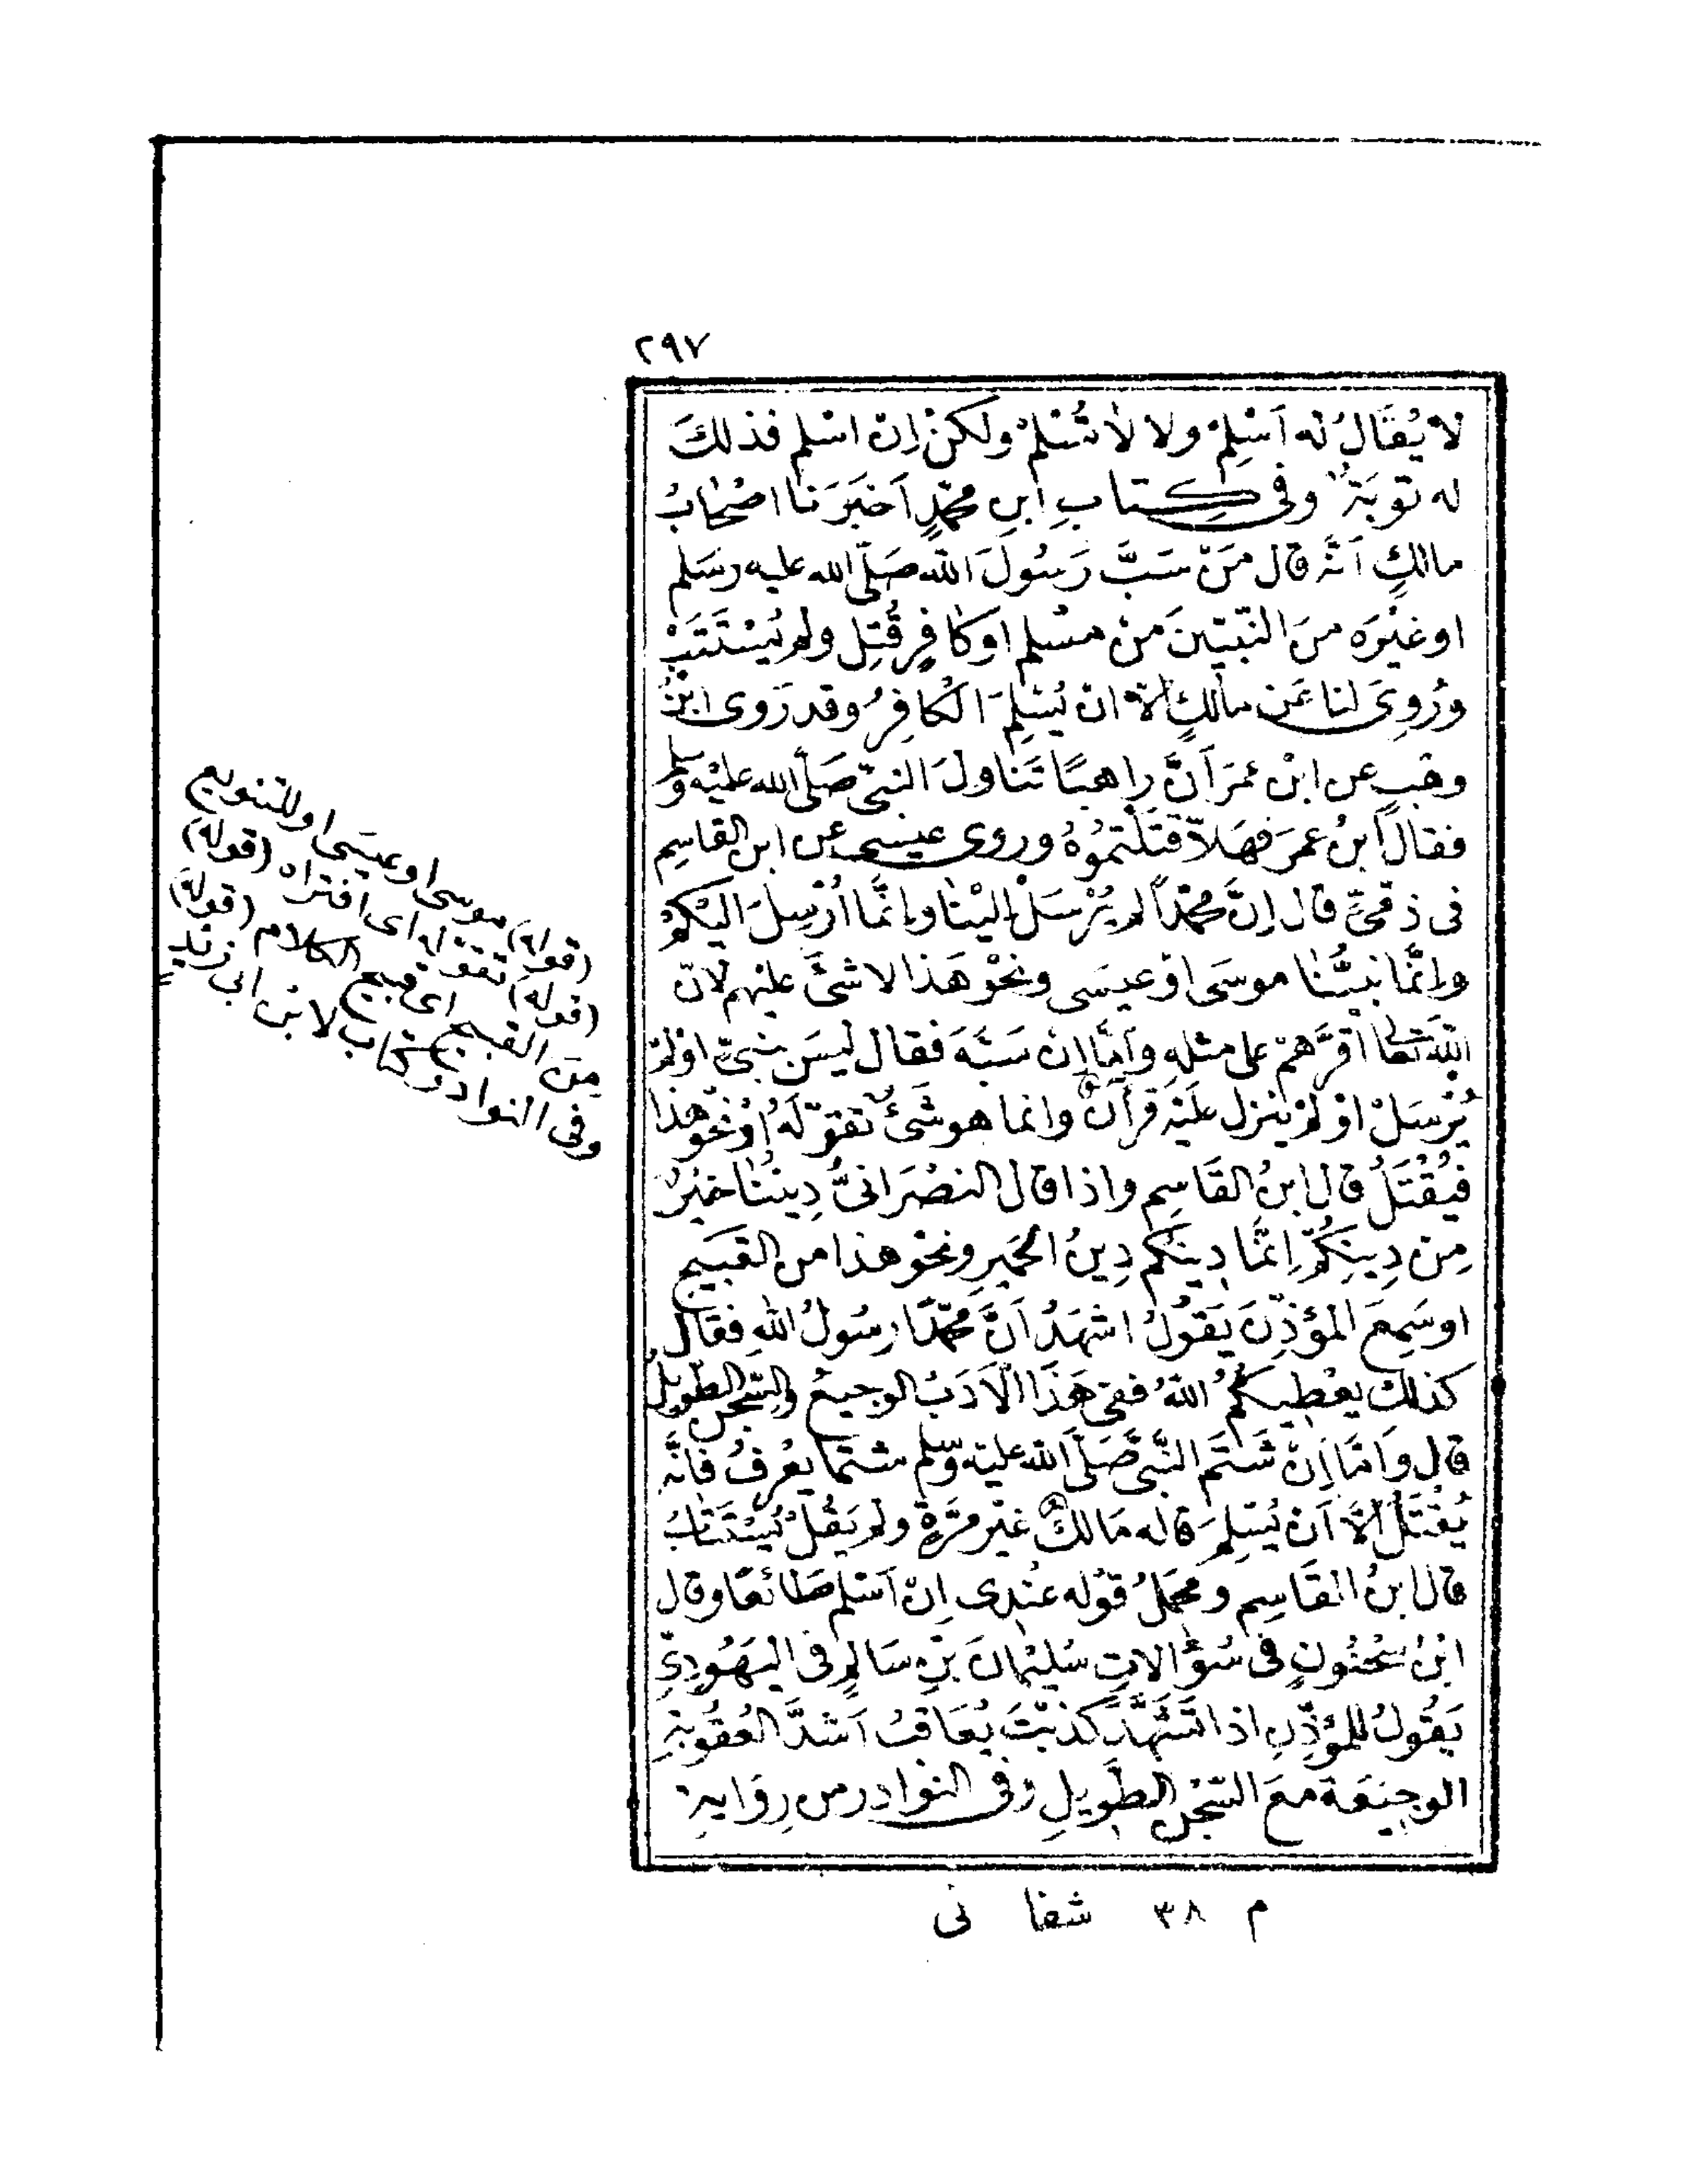 ٢٩٧
لا يُقَالُ له اَسْلِمْ ولا لاٰ تُسْلِمْ ولكنْ اِنْ اسْلم فذلكَ
له تَوْبَةٌ وفى كِتابِ ابنِ محمّدٍ اَخبَرَنا اصْحابُ
مالكٍ اَنَّهُ قال مَنْ سَبَّ رَسُولَ اللّه صَلّى الله عليه وسَلم
او غيْرَه منَ النّبيّينَ منْ مسْلم اوكافِرٍ قُتِل ولم يُسْتَتَبْ
ورُوِىَ لنا عَن مالكٍ اِلاّ ان يُسْلِمَ الكافِرُ وقد رَوى ابْنُ
وهْبٍ عن ابْن عمَرَ اَنَّ راهبًا تَناولَ النبىّ صَلّى الله عليْه وسلم
فقال ابنُ عمرَ فهَلاّ قَتَلْتمُوُهُ وروى عيسى عن ابن القاسِم
فى ذمّىٍّ قال اِنَّ محمّداً لم يُرْسَلْ اليْنا وانَّما اُرْسِلَ اليْكمْ
وانَّما نبيُّنا موسَى اوْ عيسَى ونحْوَ هَذا لا شئَ عليْهم لانّ
اللّهَ تَعَالَى اقرَّهمْ على مثلِهِ وَاَمَّا اِنْ سَبَّهَ فقال ليسَ بنبىّ اوْ لمْ
يُرْسَلْ اوْ لمْ ينزل عليْهَ قرأنٌ وانما هو شَئٌ تقوّلَهُ اوْ نحْو هذا
فيُقْتَلُ قال ابنُ القَاسِم واذا قال النصْرَانىُّ دِينُنا خَيْرٌ
مِن دِينِكُمْ اِنَّمَا دِينُكُم دِينُ الحَميرِ ونحْوَ هذا من القَبيحِ
اوسَمِعَ المؤذِّنَ يَقُولُ اشهَدُ اَنَّ محمّدًا رسُولُ اللّٰهِ فقال
كذلك يعْطيكُمُ اللّهُ ففى هَذَا الْاَدَبُ الوجيعُ والسِّجنُ الطَّويلُ
قال وَاَمّا اِنْ شَتَمَ النَّبىَّ صَلّى اللّه عليْه وسلم شتْما يُعْرفُ فانَّهُ
يُقْتَلُ اِلّا اَن يُسْلِمَ قاله مَالكٌ غيْر مَرَّةٍ ولم يَقُلْ يُسْتَتابُ
قال ابنُ القَاسِم ومحمَلُ قوْله عنْدِى اِنْ اَسْلم طائعًا وقال
ابْنُ سُحْنُونٍ فى سُؤالاتِ سُليْمانَ بْنِ سَالِمٍ فى اليَهُودِىِّ
يَقُولُ للمؤذِّنِ اذا تَشَهَّدَ كذبْتَ يُعَاقبُ اَشدَّ العُقُوبَةِ
الوجيعَة معَ السِّجْن الطَّويلِ وفى النوادر من رِوَايةِ
(قوله) موسى اوعيسَى اوللتنويع
(قوله) تقوّله اى افتراه (قوله)
من القبيح اى قبيح الكلام (قوله)
وفى النوادر كتاب لابن ابى زيدٍ
م ٣٨ شفا نى